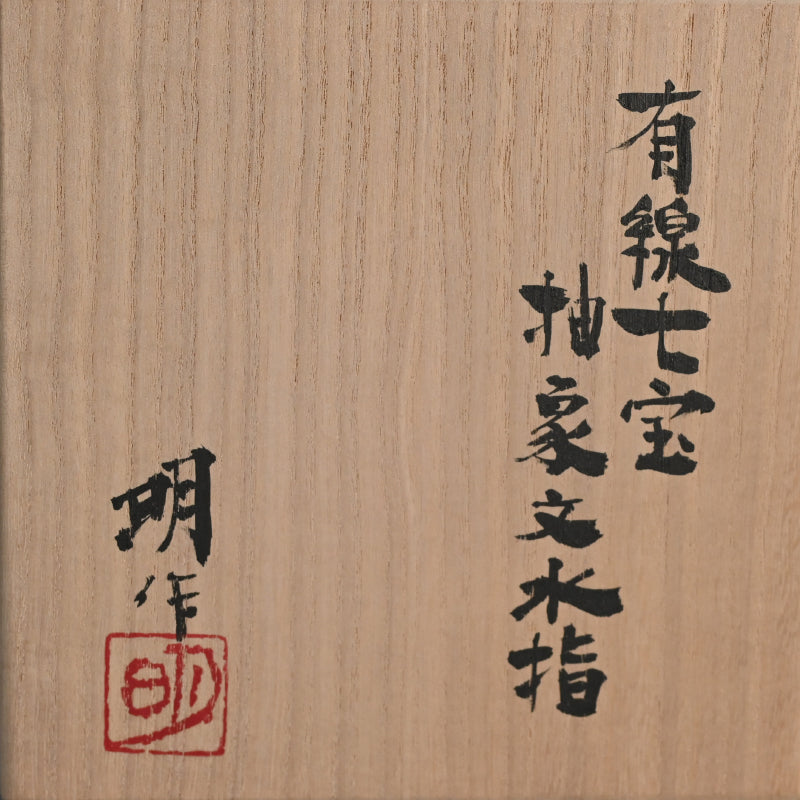 有線七宝
抽象文水指
明作
明